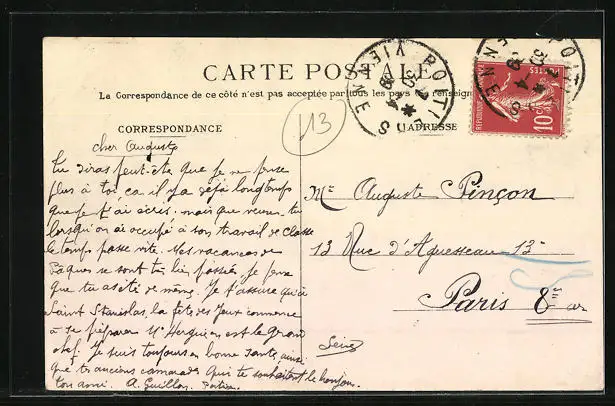 CARTE POSTALE
La Correspondance de ce côté n'est pas acceptée par tous les pays
CORRESPONDANCE
L'ADRESSE
113
POITIERS
VIENNE
POITIERS
VIENNE
REPUBLIQUE
10c
cher Auguste
Tu diras peut-être que je ne pense
plus à toi car il y a déjà longtemps
que je t'ai écris. mais que veux-tu
lorsqu'on ai occupé à son travail de classe
le temps passe vite. Mes vacances de
Pâques se sont très bien passées, je pense
que tu as été de même. Je t'assure qu'à
Saint Stanislas la fête des Jeux commence
à se préparer Mr est le grand
chef. Je suis toujours en bonne santé ainsi
que tes anciens camarades qui te souhaitent le bonjour.
ton ami. A. Guillon. Poitiers.
Mr Auguste Pinçon
13 Rue d'Aguesseau 13
Paris 8 arr
Seine